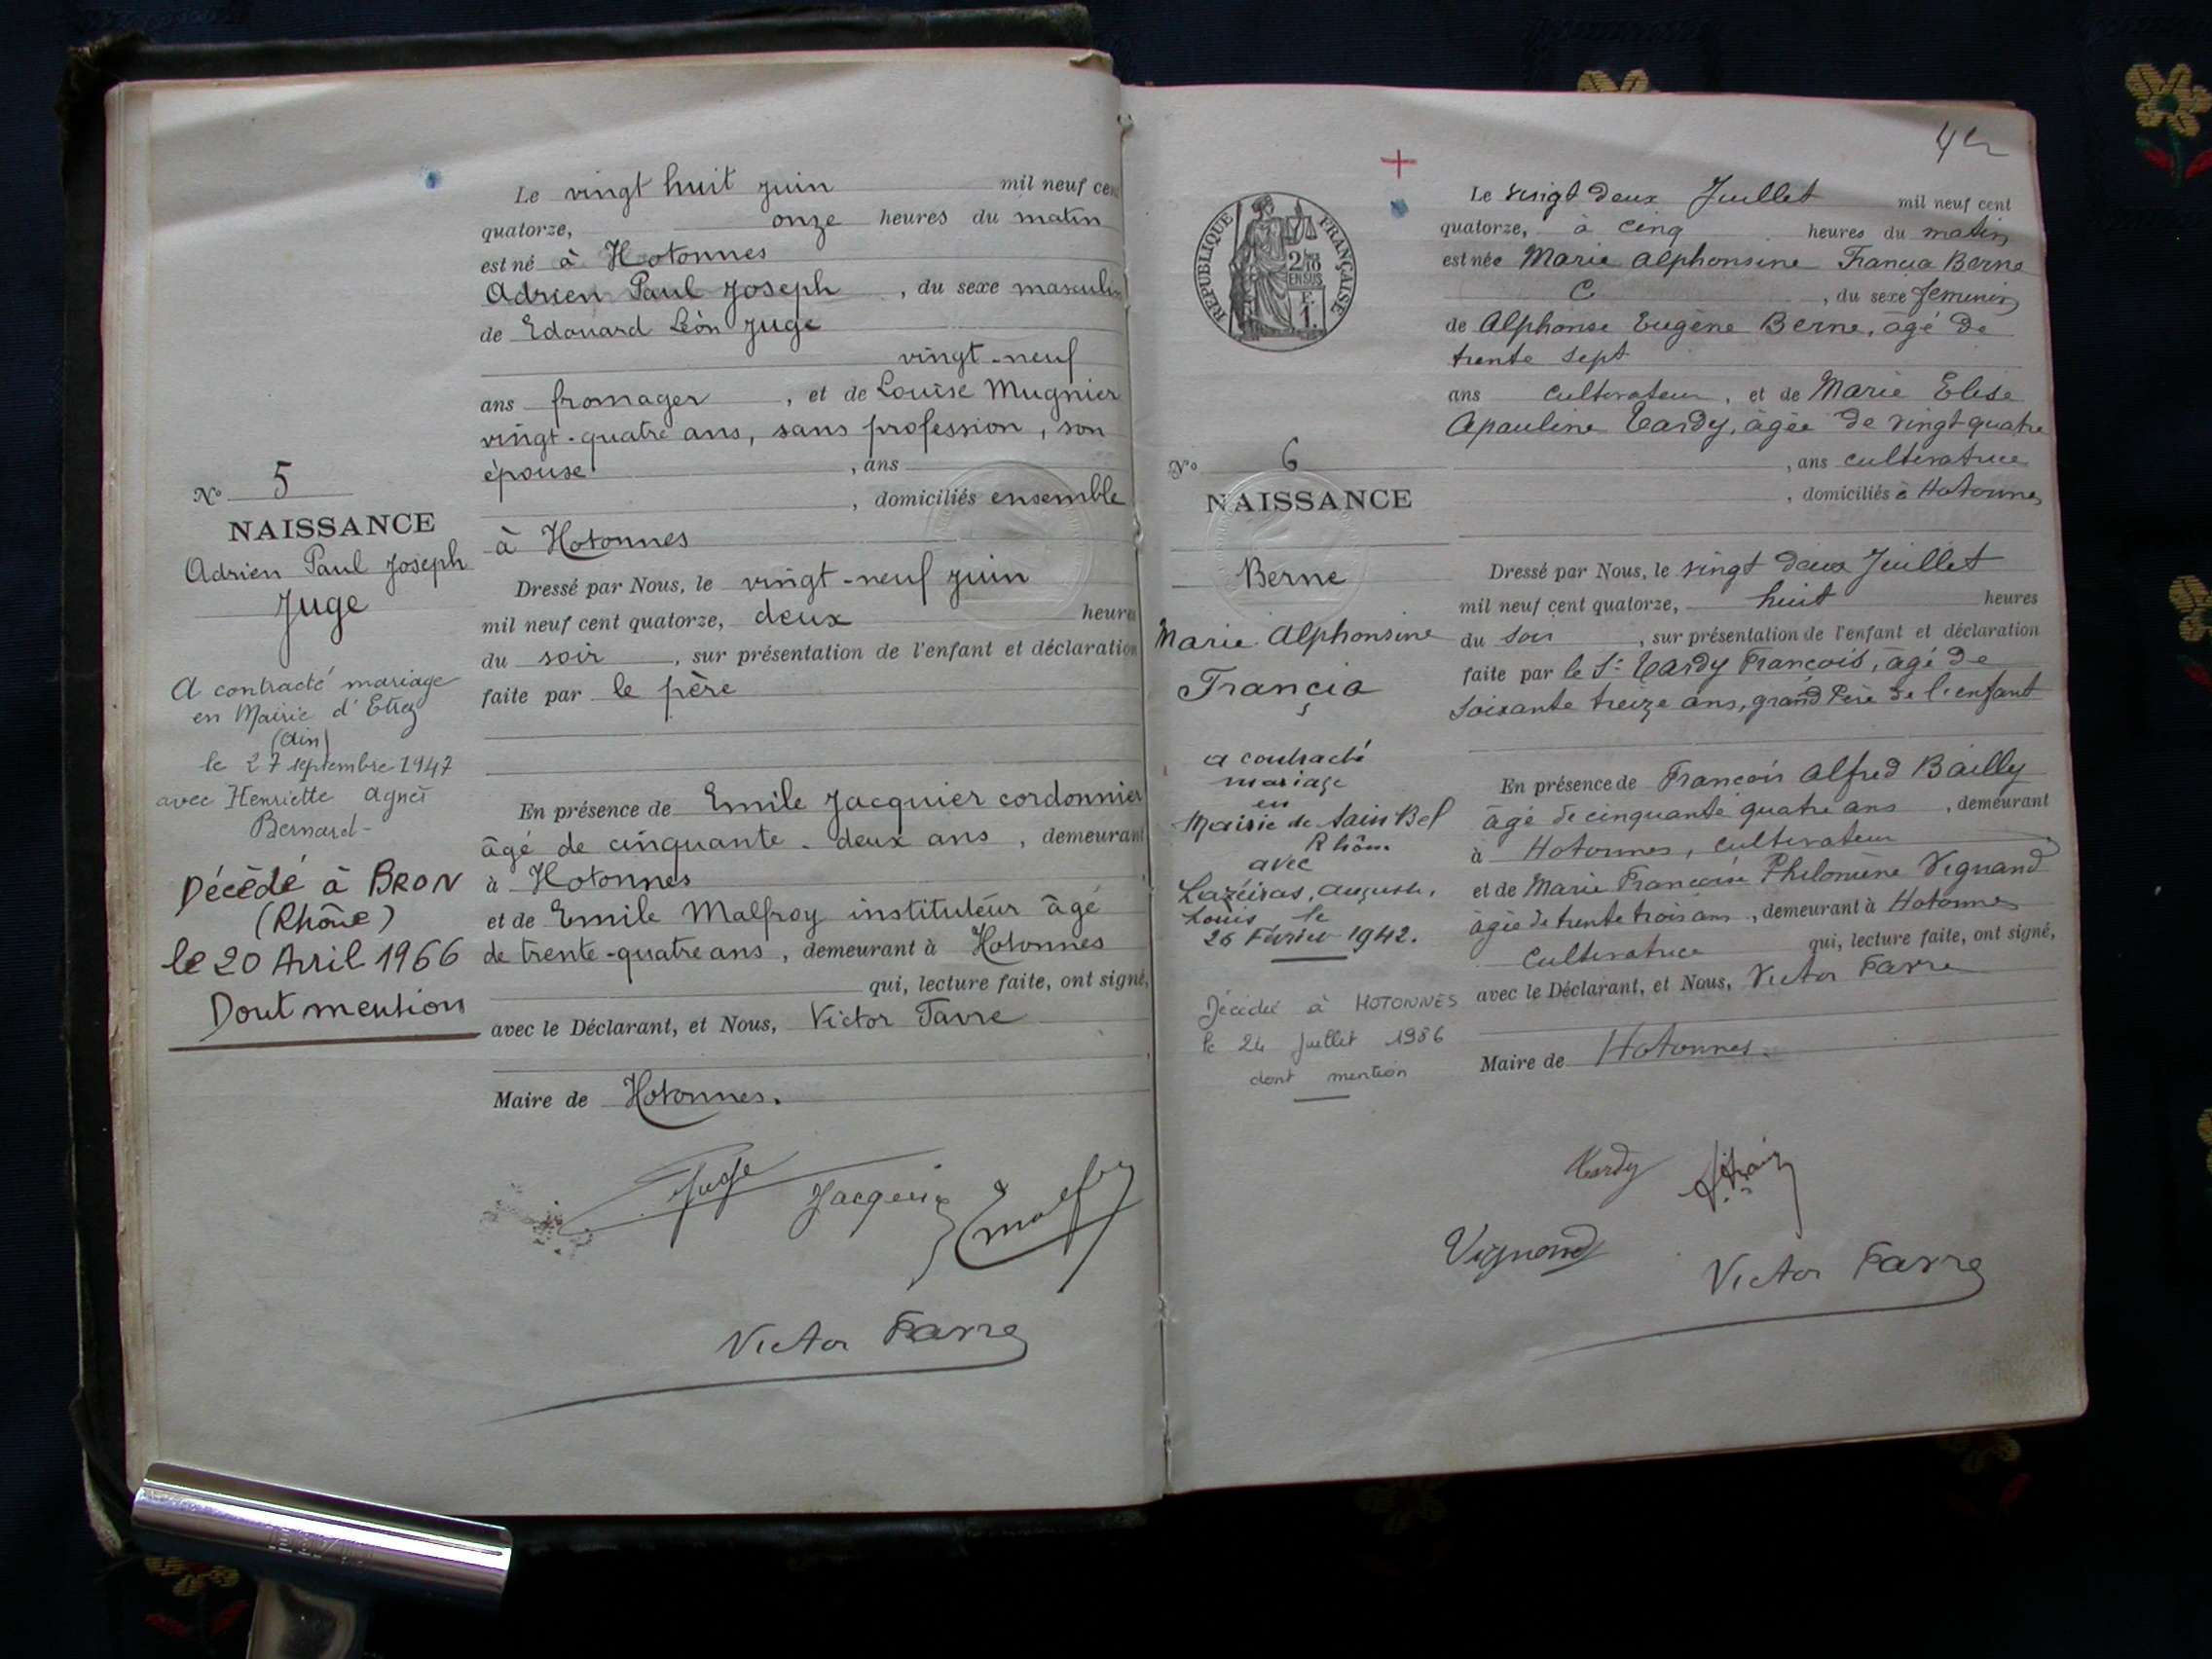 Le vingt huit juin mil neuf cen
quatorze, onze heures du matin
est né à Hotonnes
Adrien Paul Joseph , du sexe masculin
de Edouard Léon Juge
vingt-neuf
ans fromager , et de Louise Mugnier
vingt-quatre ans, sans profession, son
épouse , ans
, domiciliés ensemble
à Hotonnes
N° 5
NAISSANCE
Adrien Paul Joseph
Juge
A contracté mariage
en Mairie d'Etrez
(Ain)
le 27 septembre 1947
avec Henriette Agnès
Bernard-
Décédé à BRON
(Rhône)
le 20 Avril 1966
Dont mention
Dressé par Nous, le vingt-neuf juin
mil neuf cent quatorze, deux heures
du soir , sur présentation de l'enfant et déclaration
faite par le père
En présence de Emile Jacquier cordonnier
âgé de cinquante-deux ans , demeurant
à Hotonnes
et de Emile Malfroy instituteur âgé
de trente-quatre ans, demeurant à Hotonnes
qui, lecture faite, ont signé,
avec le Déclarant, et Nous, Victor Favre
Maire de Hotonnes.
Juge Jacquier
Victor Favre
42
RÉPUBLIQUE FRANÇAISE
2/10
EN SUS
F.
1.
Le vingt deux Juillet mil neuf cent
quatorze, à cinq heures du matin
est née Marie Alphonsine Francia Berne
, du sexe féminin
de Alphonse Eugène Berne, âgé de
trente sept
ans cultivateur , et de Marie Elise
Apauline Tardy, âgée de vingt-quatre
, ans cultivatrice
, domiciliés à Hotonnes
N° 6
NAISSANCE
Berne
Marie Alphonsine
Francia
a contracté
mariage
en
Mairie de Sain Bel
Rhône
avec
Auguste,
Louis le
26 Février 1942.
Décédée à HOTONNES
le 24 Juillet 1986
dont mention
Dressé par Nous, le vingt deux Juillet
mil neuf cent quatorze, huit heures
du soir , sur présentation de l'enfant et déclaration
faite par le Sr Tardy François, âgé de
soixante treize ans, grand Père de l'enfant
En présence de François Alfred Bailly
âgé de cinquante quatre ans , demeurant
à Hotonnes, cultivateur
et de Marie Françoise Philomène Vignand
âgée de trente trois ans , demeurant à Hotonnes
Cultivatrice qui, lecture faite, ont signé,
avec le Déclarant, et Nous, Victor Favre
Maire de Hotonnes.
Tardy
Vignand
Victor Favre